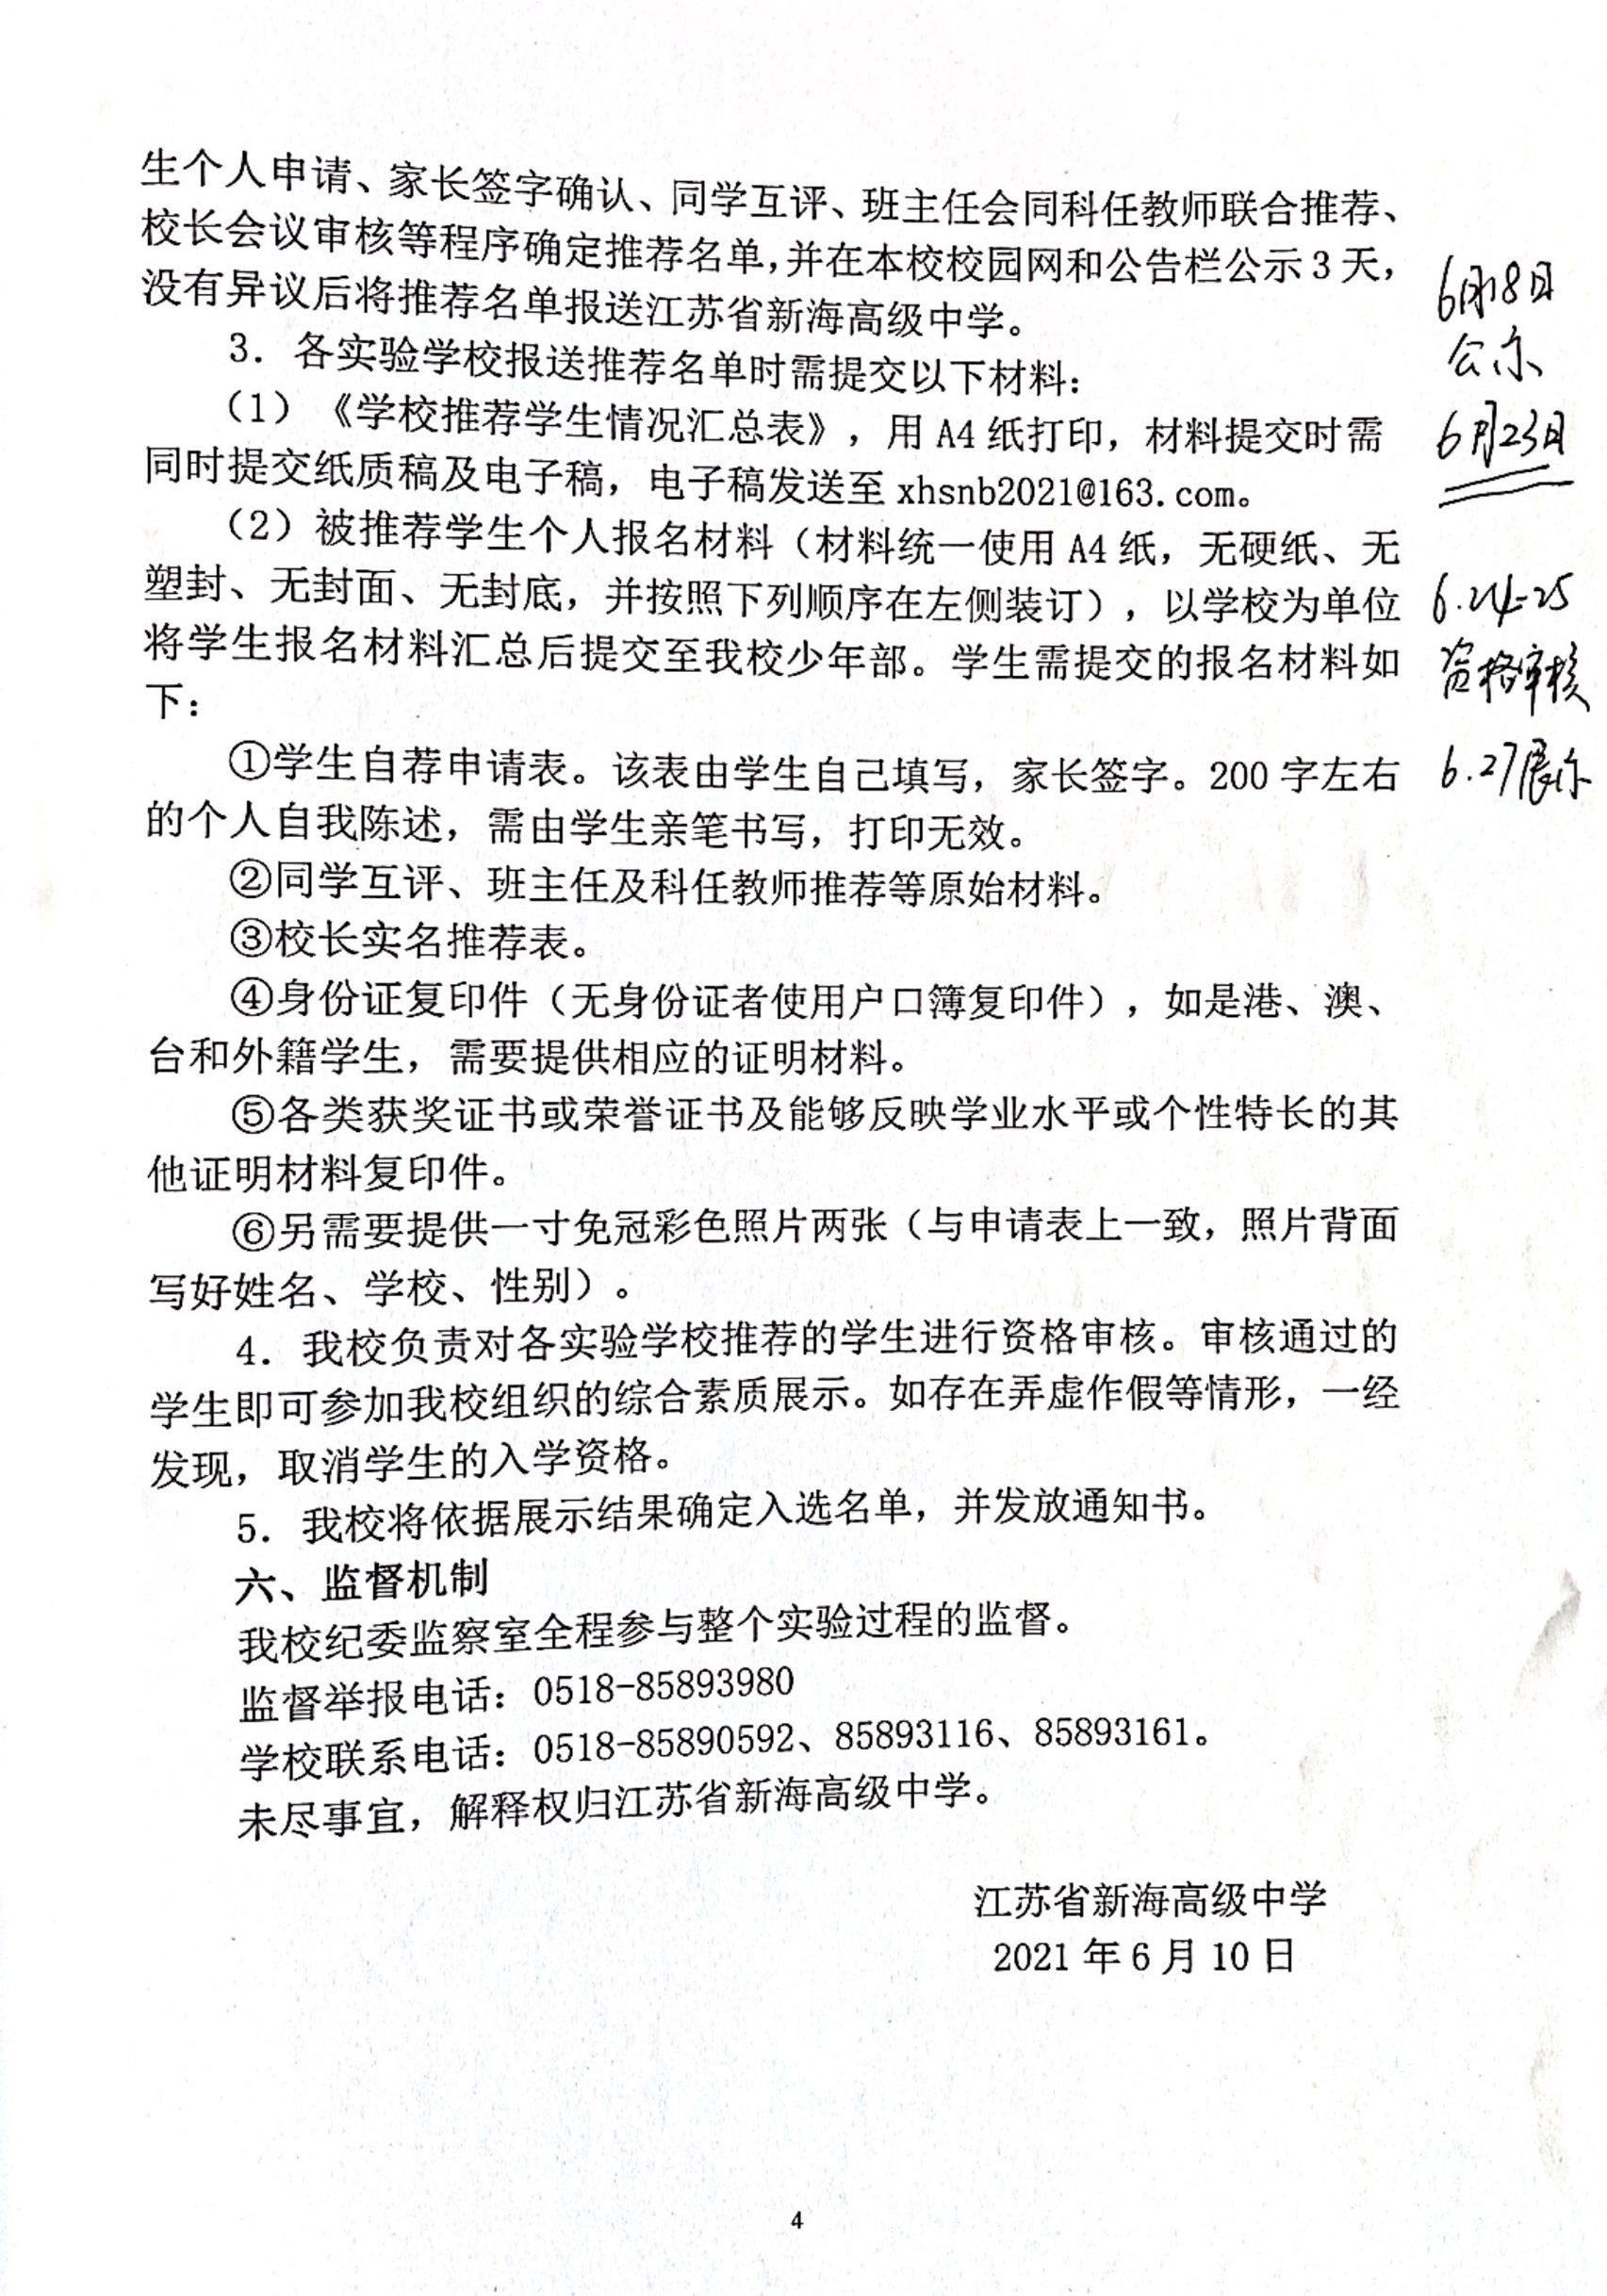 生个人申请、家长签字确认、同学互评、班主任会同科任教师联合推荐、
校长会议审核等程序确定推荐名单，并在本校校园网和公告栏公示3天，
没有异议后将推荐名单报送江苏省新海高级中学。
3．各实验学校报送推荐名单时需提交以下材料：
（1）《学校推荐学生情况汇总表》，用A4纸打印，材料提交时需
同时提交纸质稿及电子稿，电子稿发送至xhsnb2021@163.com。
（2）被推荐学生个人报名材料（材料统一使用A4纸，无硬纸、无
塑封、无封面、无封底，并按照下列顺序在左侧装订），以学校为单位
将学生报名材料汇总后提交至我校少年部。学生需提交的报名材料如
下：
①学生自荐申请表。该表由学生自己填写，家长签字。200字左右
的个人自我陈述，需由学生亲笔书写，打印无效。
②同学互评、班主任及科任教师推荐等原始材料。
③校长实名推荐表。
④身份证复印件（无身份证者使用户口簿复印件），如是港、澳、
台和外籍学生，需要提供相应的证明材料。
⑤各类获奖证书或荣誉证书及能够反映学业水平或个性特长的其
他证明材料复印件。
⑥另需要提供一寸免冠彩色照片两张（与申请表上一致，照片背面
写好姓名、学校、性别）。
4．我校负责对各实验学校推荐的学生进行资格审核。审核通过的
学生即可参加我校组织的综合素质展示。如存在弄虚作假等情形，一经
发现，取消学生的入学资格。
5．我校将依据展示结果确定入选名单，并发放通知书。
六、监督机制
我校纪委监察室全程参与整个实验过程的监督。
监督举报电话：0518-85893980
学校联系电话：0518-85890592、85893116、85893161。
未尽事宜，解释权归江苏省新海高级中学。
江苏省新海高级中学
2021年6月10日
4
6月18日
公示
6月23日
6.24-25
资格审核
6.27展示